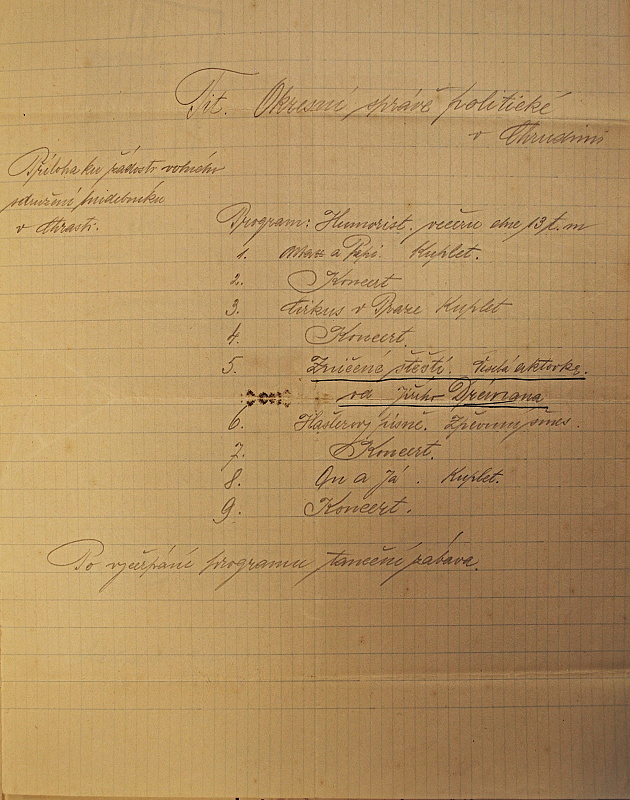 Tit. Okresní správě politické
v Chrudimi
Příloha ku žádosti volného
sdružení hudebníků
v Chrasti.
Program: Humorist. večeru dne 13 t. m
1. Max a Pepi. Kuplet.
2. Koncert
3 Cirkus v Praze Kuplet
4. Koncert.
5. Zničené štěstí. Veselá aktovka.
od Jiřího Dreimana
6. Hašlerovy písně. Zpěvnný směs.
7. Koncert.
8. On a Já. Kuplet.
9. Koncert.
Po vyčerpání programu taneční zábava.